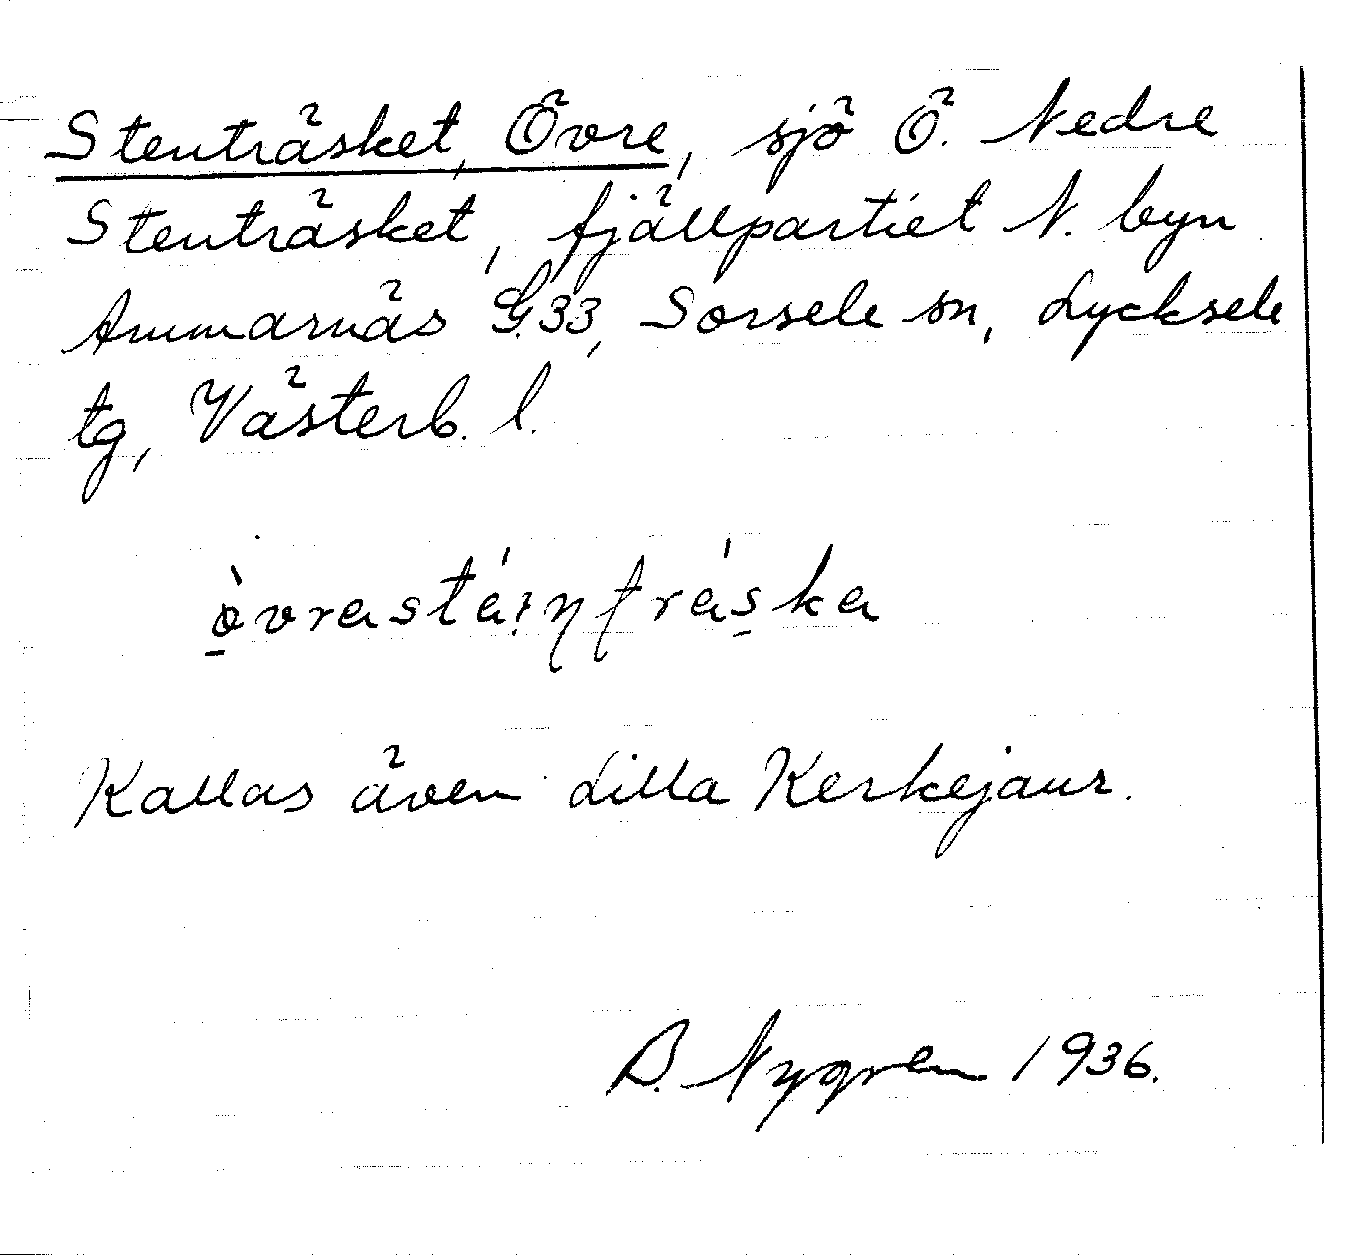 Stenträsket, Övre, sjö Ö. Nedre
Stenträsket, fjällpartiet N. byn
Ammarnäs G.33, Sorsele sn, Lycksele
tg, Västerb. l.
Kallas även Lilla Kerkejaur.
B. Nygren 1936.